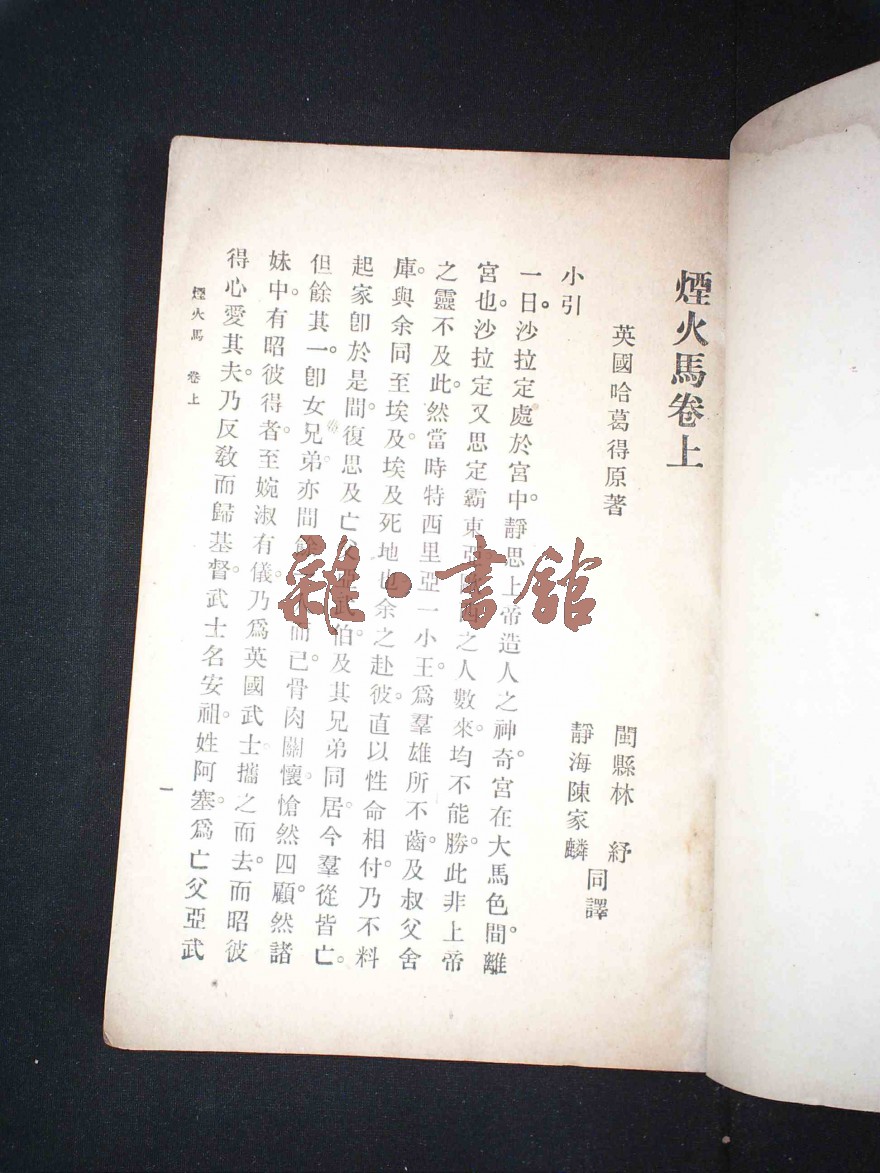 煙火馬卷上
英國哈葛得原著
閩縣林　紓
靜海陳家麟
同譯
小引
一日。沙拉定處於宮中。靜思上帝造人之神奇。宮在大馬色。間離
宮也。沙拉定又思定霸東亞 之人數來。均不能勝。此非上帝
之靈不及此。然當時特西里亞一小王。爲羣雄所不齒。及叔父舍
庫。與余同至埃及。埃及死地也。余之赴彼。直以性命相付。乃不料
起家卽於是間。復思及亡父亞武伯。及其兄弟同居。今羣從皆亡。
但餘其一。卽女兄弟亦間 而已。骨肉關懷。愴然四顧。然諸
妹中。有昭彼得者。至婉淑有儀。乃爲英國武士。攜之而去。而昭彼
得心愛其夫。乃反敎而歸基督。武士名安祖。姓阿塞。爲亡父亞武
煙火馬　卷上
一
雜·書館